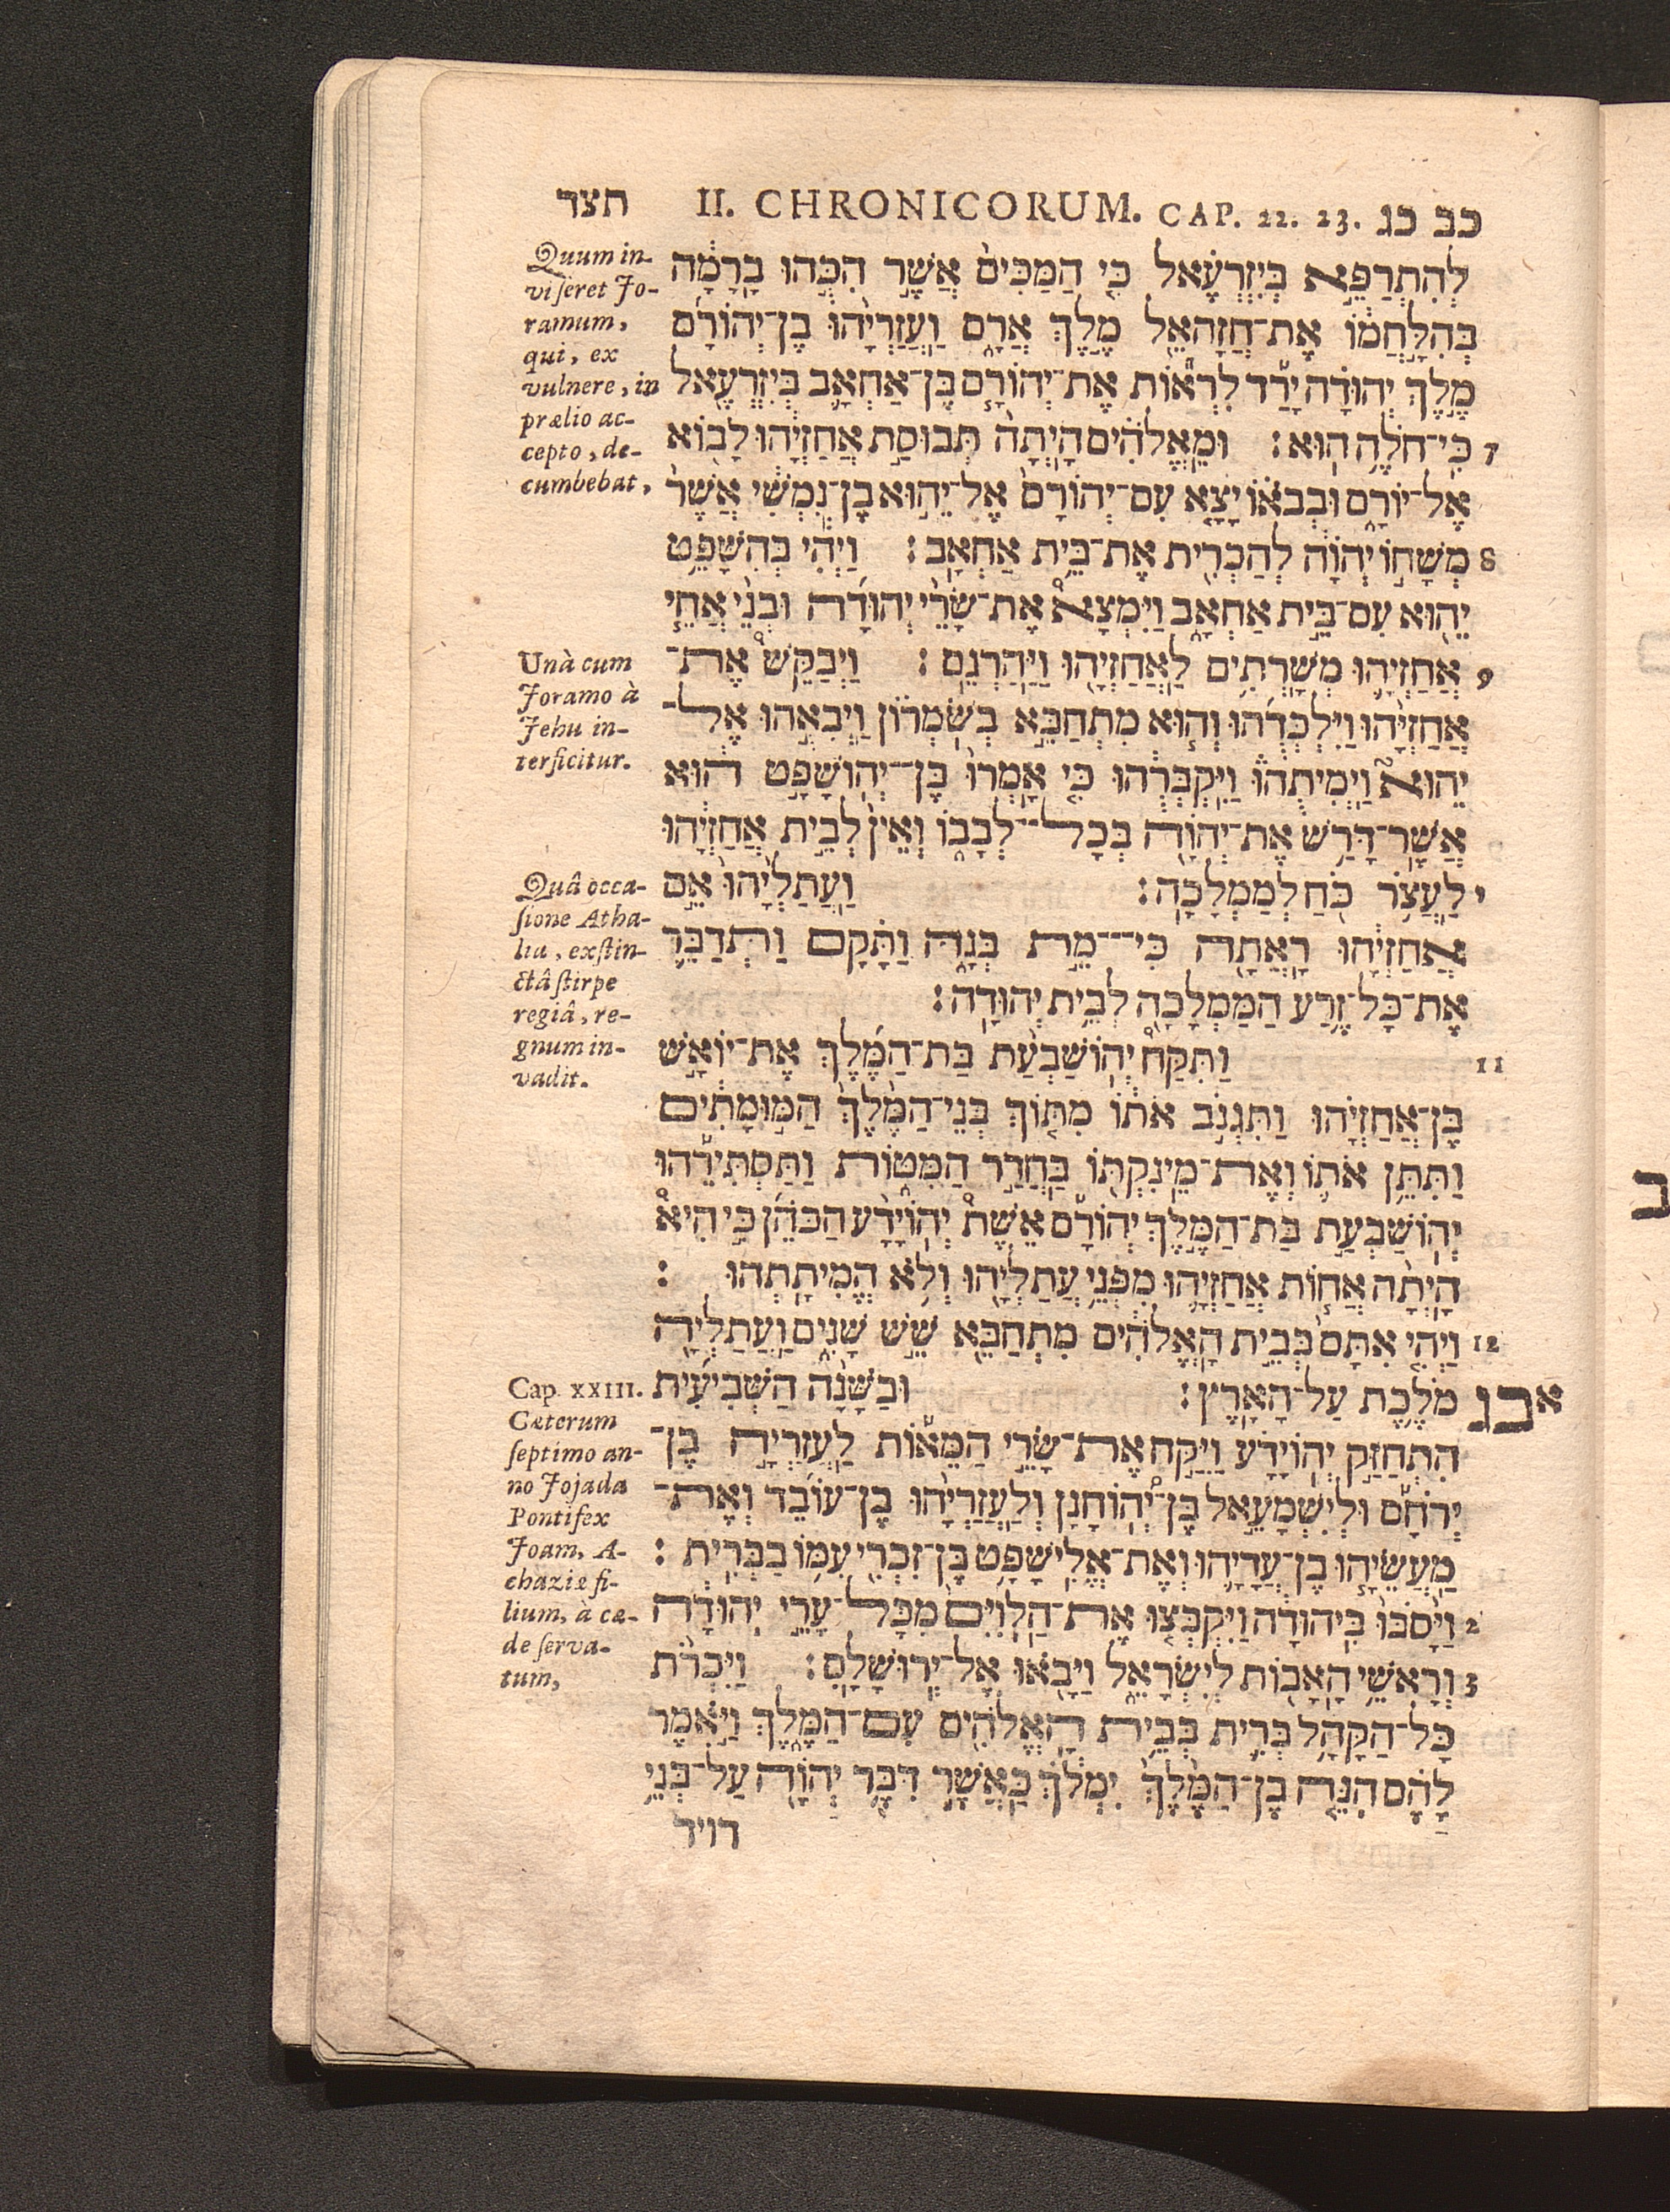 תצד II. CHRONICORUM. CAP. 22. 23. כב כג
לְהִתְרַפֵּא בְיִזְרְעֶאל כִּי הַמַּכִּים אֲשֶׁר הִכֻּהוּ בָרָמָה
בְּהִלָּחֲמוֹ אֶת־חֲזָהאֵל מֶלֶךְ אֲרָם וַעֲזַרְיָהוּ בֶן־יְהוֹרָם
מֶלֶךְ יְהוּדָה יָרַד לִרְאוֹת אֶת־יְהוֹרָם בֶּן־אַחְאָב בְּיִזְרְעֶאל
7 כִּי־חֹלֶה הוּא׃ וּמֵאֱלֹהִים הָיְתָה תְּבוּסַת אֲחַזְיָהוּ לָבוֹא
אֶל־יוֹרָם וּבְבֹאוֹ יָצָא עִם־יְהוֹרָם אֶל־יֵהוּא בֶן־נִמְשִׁי אֲשֶׁר
8 מְשָׁחוֹ יְהוָה לְהַכְרִית אֶת־בֵּית אַחְאָב׃ וַיְהִי כְּהִשָּׁפֵט
יֵהוּא עִם־בֵּית אַחְאָב וַיִּמְצָא אֶת־שָׂרֵי יְהוּדָה וּבְנֵי אֲחֵי
9 אֲחַזְיָהוּ מְשָׁרְתִים לַאֲחַזְיָהוּ וַיַּהַרְגֵם׃ וַיְבַקֵּשׁ אֶת־
אֲחַזְיָהוּ וַיִּלְכְּדֻהוּ וְהוּא מִתְחַבֵּא בְשֹׁמְרוֹן וַיְבִאֻהוּ אֶל־
יֵהוּא וַיְמִיתֻהוּ וַיִּקְבְּרֻהוּ כִּי אָמְרוּ בֶּן־יְהוֹשָׁפָט הוּא
אֲשֶׁר־דָּרַשׁ אֶת־יְהוָה בְּכָל־לְבָבוֹ וְאֵין לְבֵית אֲחַזְיָהוּ
י לַעֲצֹר כֹּחַ לְמַמְלָכָה׃ וַעֲתַלְיָהוּ אֵם
אֲחַזְיָהוּ רָאֲתָה כִּי־מֵת בְּנָהּ וַתָּקָם וַתְּדַבֵּר
אֶת־כָּל־זֶרַע הַמַּמְלָכָה לְבֵית יְהוּדָה׃
11 וַתִּקַּח יְהוֹשַׁבְעַת בַּת־הַמֶּלֶךְ אֶת־יוֹאָשׁ
בֶּן־אֲחַזְיָהוּ וַתִּגְנֹב אֹתוֹ מִתּוֹךְ בְּנֵי־הַמֶּלֶךְ הַמּוּמָתִים
וַתִּתֵּן אֹתוֹ וְאֶת־מֵינִקְתּוֹ בַּחֲדַר הַמִּטּוֹת וַתַּסְתִּירֵהוּ
יְהוֹשַׁבְעַת בַּת־הַמֶּלֶךְ יְהוֹרָם אֵשֶׁת יְהוֹיָדָע הַכֹּהֵן כִּי הִיא
הָיְתָה אֲחוֹת אֲחַזְיָהוּ מִפְּנֵי עֲתַלְיָהוּ וְלֹא הֱמִיתָתְהוּ׃
12 וַיְהִי אִתָּם בְּבֵית הָאֱלֹהִים מִתְחַבֵּא שֵׁשׁ שָׁנִים וַעֲתַלְיָה
א כג מֹלֶכֶת עַל־הָאָרֶץ׃ וּבַשָּׁנָה הַשְּׁבִיעִית
הִתְחַזַּק יְהוֹיָדָע וַיִּקַּח אֶת־שָׂרֵי הַמֵּאוֹת לַעֲזַרְיָה בֶן־
יְרֹחָם וּלְיִשְׁמָעֵאל בֶּן־יְהוֹחָנָן וְלַעֲזַרְיָהוּ בֶן־עוֹבֵד וְאֶת־
מַעֲשֵׂיָהוּ בֶן־עֲדָיָהוּ וְאֶת־אֱלִישָׁפָט בֶּן־זִכְרִי עִמּוֹ בַבְּרִית׃
2 וַיָּסֹבּוּ בִּיהוּדָה וַיִּקְבְּצוּ אֶת־הַלְוִיִּם מִכָּל־עָרֵי יְהוּדָה
3 וְרָאשֵׁי הָאָבוֹת לְיִשְׂרָאֵל וַיָּבֹאוּ אֶל־יְרוּשָׁלָםִ׃ וַיִּכְרֹת
כָּל־הַקָּהָל בְּרִית בְּבֵית הָאֱלֹהִים עִם־הַמֶּלֶךְ וַיֹּאמֶר
לָהֶם הִנֵּה בֶן־הַמֶּלֶךְ יִמְלֹךְ כַּאֲשֶׁר דִּבֶּר יְהוָה עַל־בְּנֵי
דויד
Quum in-
viseret Jo-
ramum,
qui, ex
vulnere, in
prælio ac-
cepto, de-
cumbebat,
Unà cum
Joramo à
Jehu in-
terficitur.
Quâ occa-
sione Atha-
lia, exstin-
ctâ stirpe
regiâ, re-
gnum in-
vadit.
Cap. XXIII.
Cæterum
septimo an-
no Jojada
Pontifex
Joam, A-
chaziæ fi-
lium, à cæ-
de serva-
tum,
ב